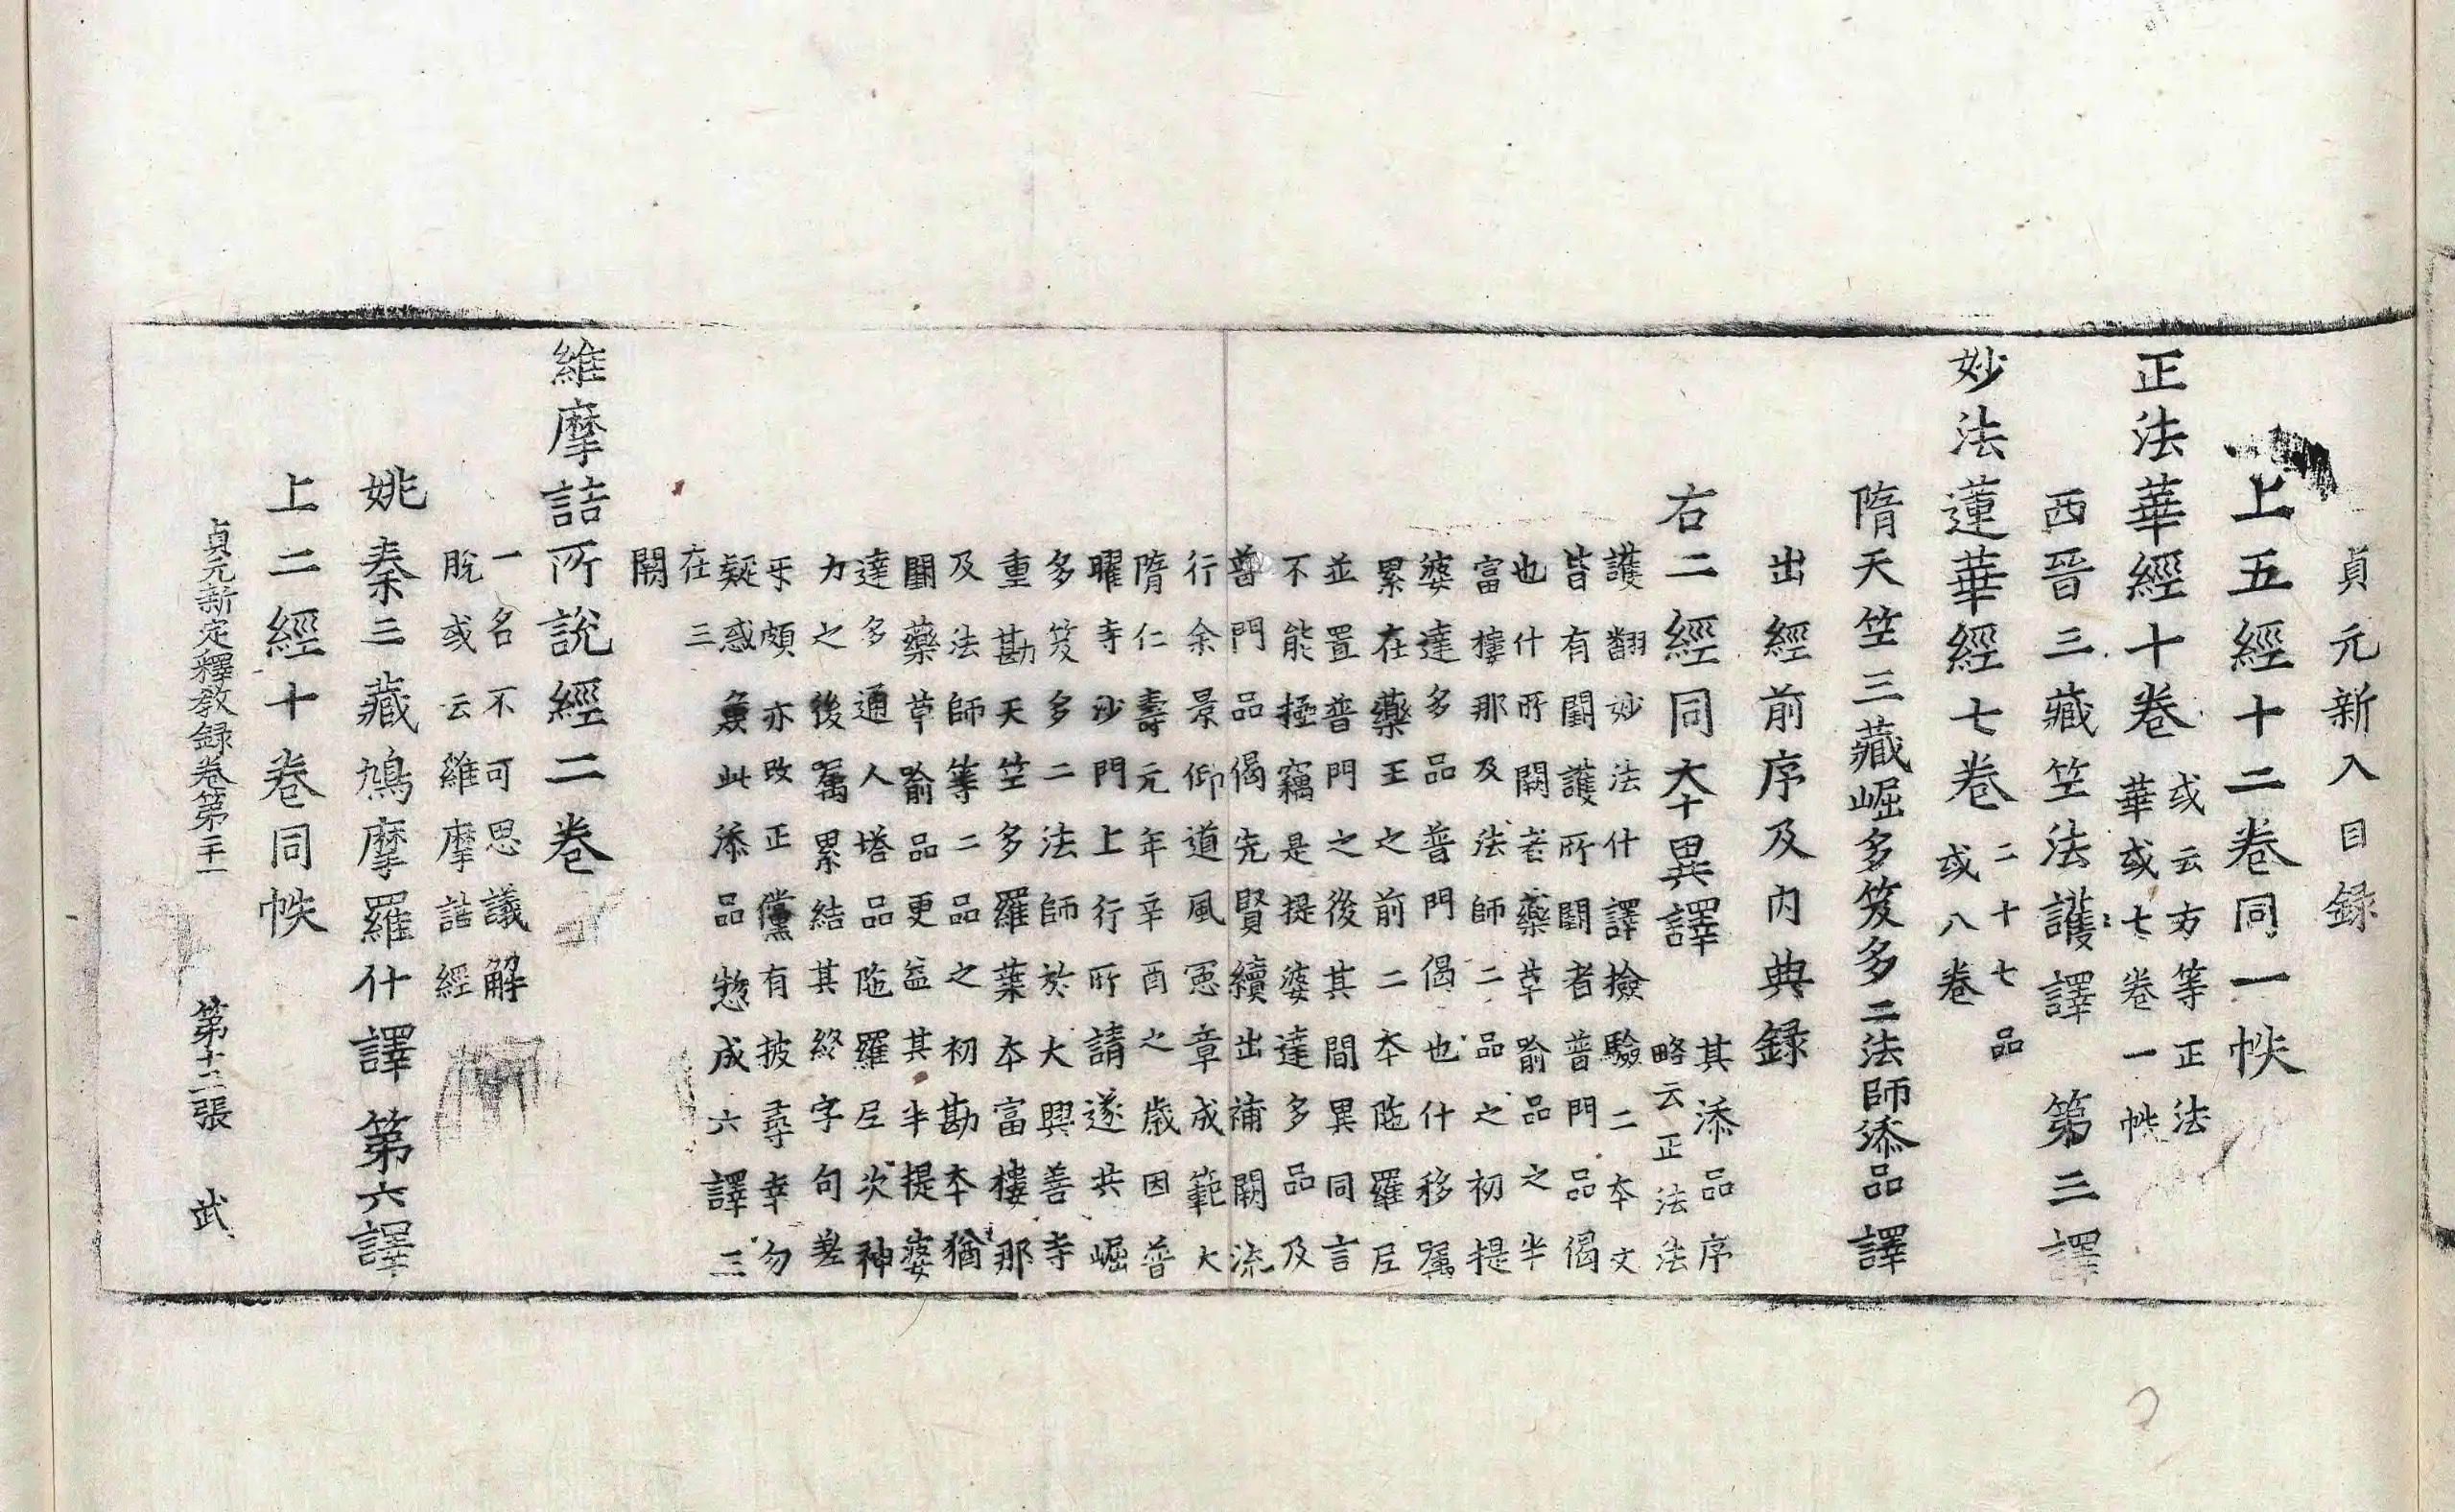 貞元新入目録
上五經十二卷同一帙
正法華經十卷
或云方等正法
華或七卷一帙
西晉三藏竺法護譯 第三譯
妙法蓮華經七卷
二十七品
或八卷
隋天竺三藏崛多笈多二法師添品譯
出經前序及内典録
右二經同夲異譯
其添品序
略云正法法
護翻妙法什譯撿驗二夲文
皆有闕護所闕者普門品偈
也什所闕者藥草喻品之半
富樓那及法師二品之初提
婆達多品普門偈也什移囑
累在藥王之前二夲陁羅尼
並置普門之後其間異同言
不能極竊是提婆達多品及
普門品偈先賢續出補闕流
行余景仰道風憲章成範大
隋仁壽元年辛酉之歲因普
曜寺沙門上行所請遂共崛
多笈多二法師於大興善寺
重勘天竺多羅葉夲富樓那
及法師等二品之初勘夲猶
闕藥草喻品更益其半提婆
達多通人塔品陁羅尼次神
力之後囑累結其終字句差
乖頗亦改正儻有披尋幸勿
疑惑𠔥此添品惣成六譯三
在三
闕
維摩詰所說經二卷
一名不可思議解
脫或云維摩詰經
姚秦三藏鳩摩羅什譯 第六譯
上二經十卷同帙
貞元新定釋教録卷第二十一 第十二張 武